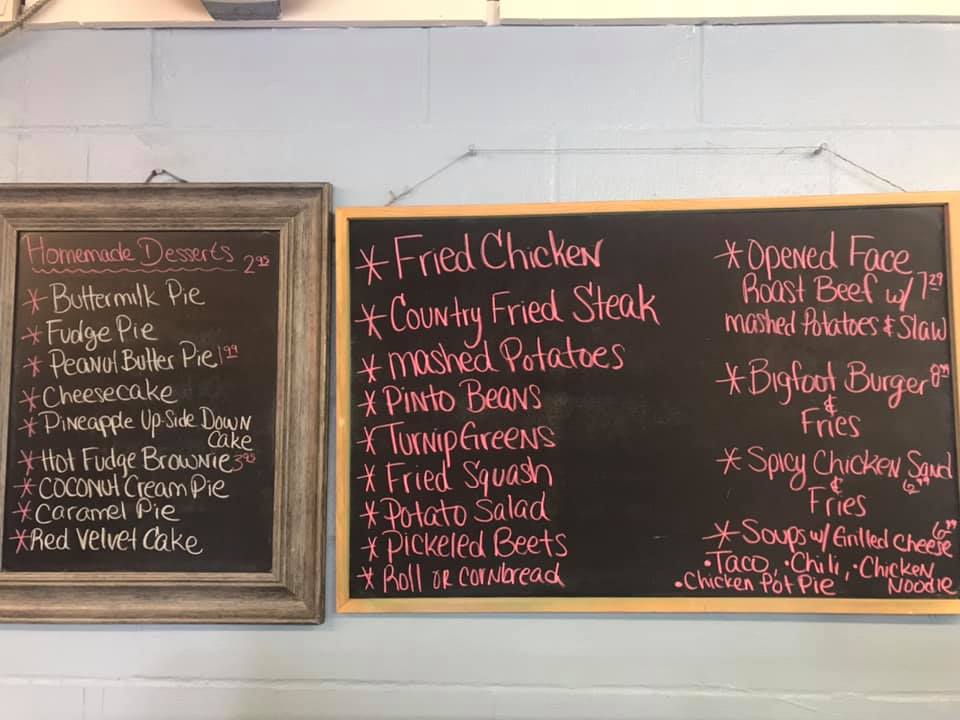 Homemade Desserts 2.95
* Buttermilk Pie
* Fudge Pie
* Peanut Butter Pie 1.99
* Cheesecake
* Pineapple Up-Side Down
Cake
* Hot Fudge Brownie 3.95
* Coconut Cream Pie
* Caramel Pie
* Red Velvet Cake
* Fried Chicken
* Country Fried Steak
* mashed Potatoes
* Pinto Beans
* Turnip Greens
* Fried Squash
* Potato Salad
* Pickeled Beets
* Roll or cornbread
* Opened Face
Roast Beef w/ 7.29
mashed Potatoes & Slaw
* Bigfoot Burger 8.99
&
Fries
* Spicy Chicken Sand
& 6.99
Fries
* Soups w/ Grilled cheese 6.99
• Taco, • Chili, • Chicken
Noodle
• Chicken Pot Pie